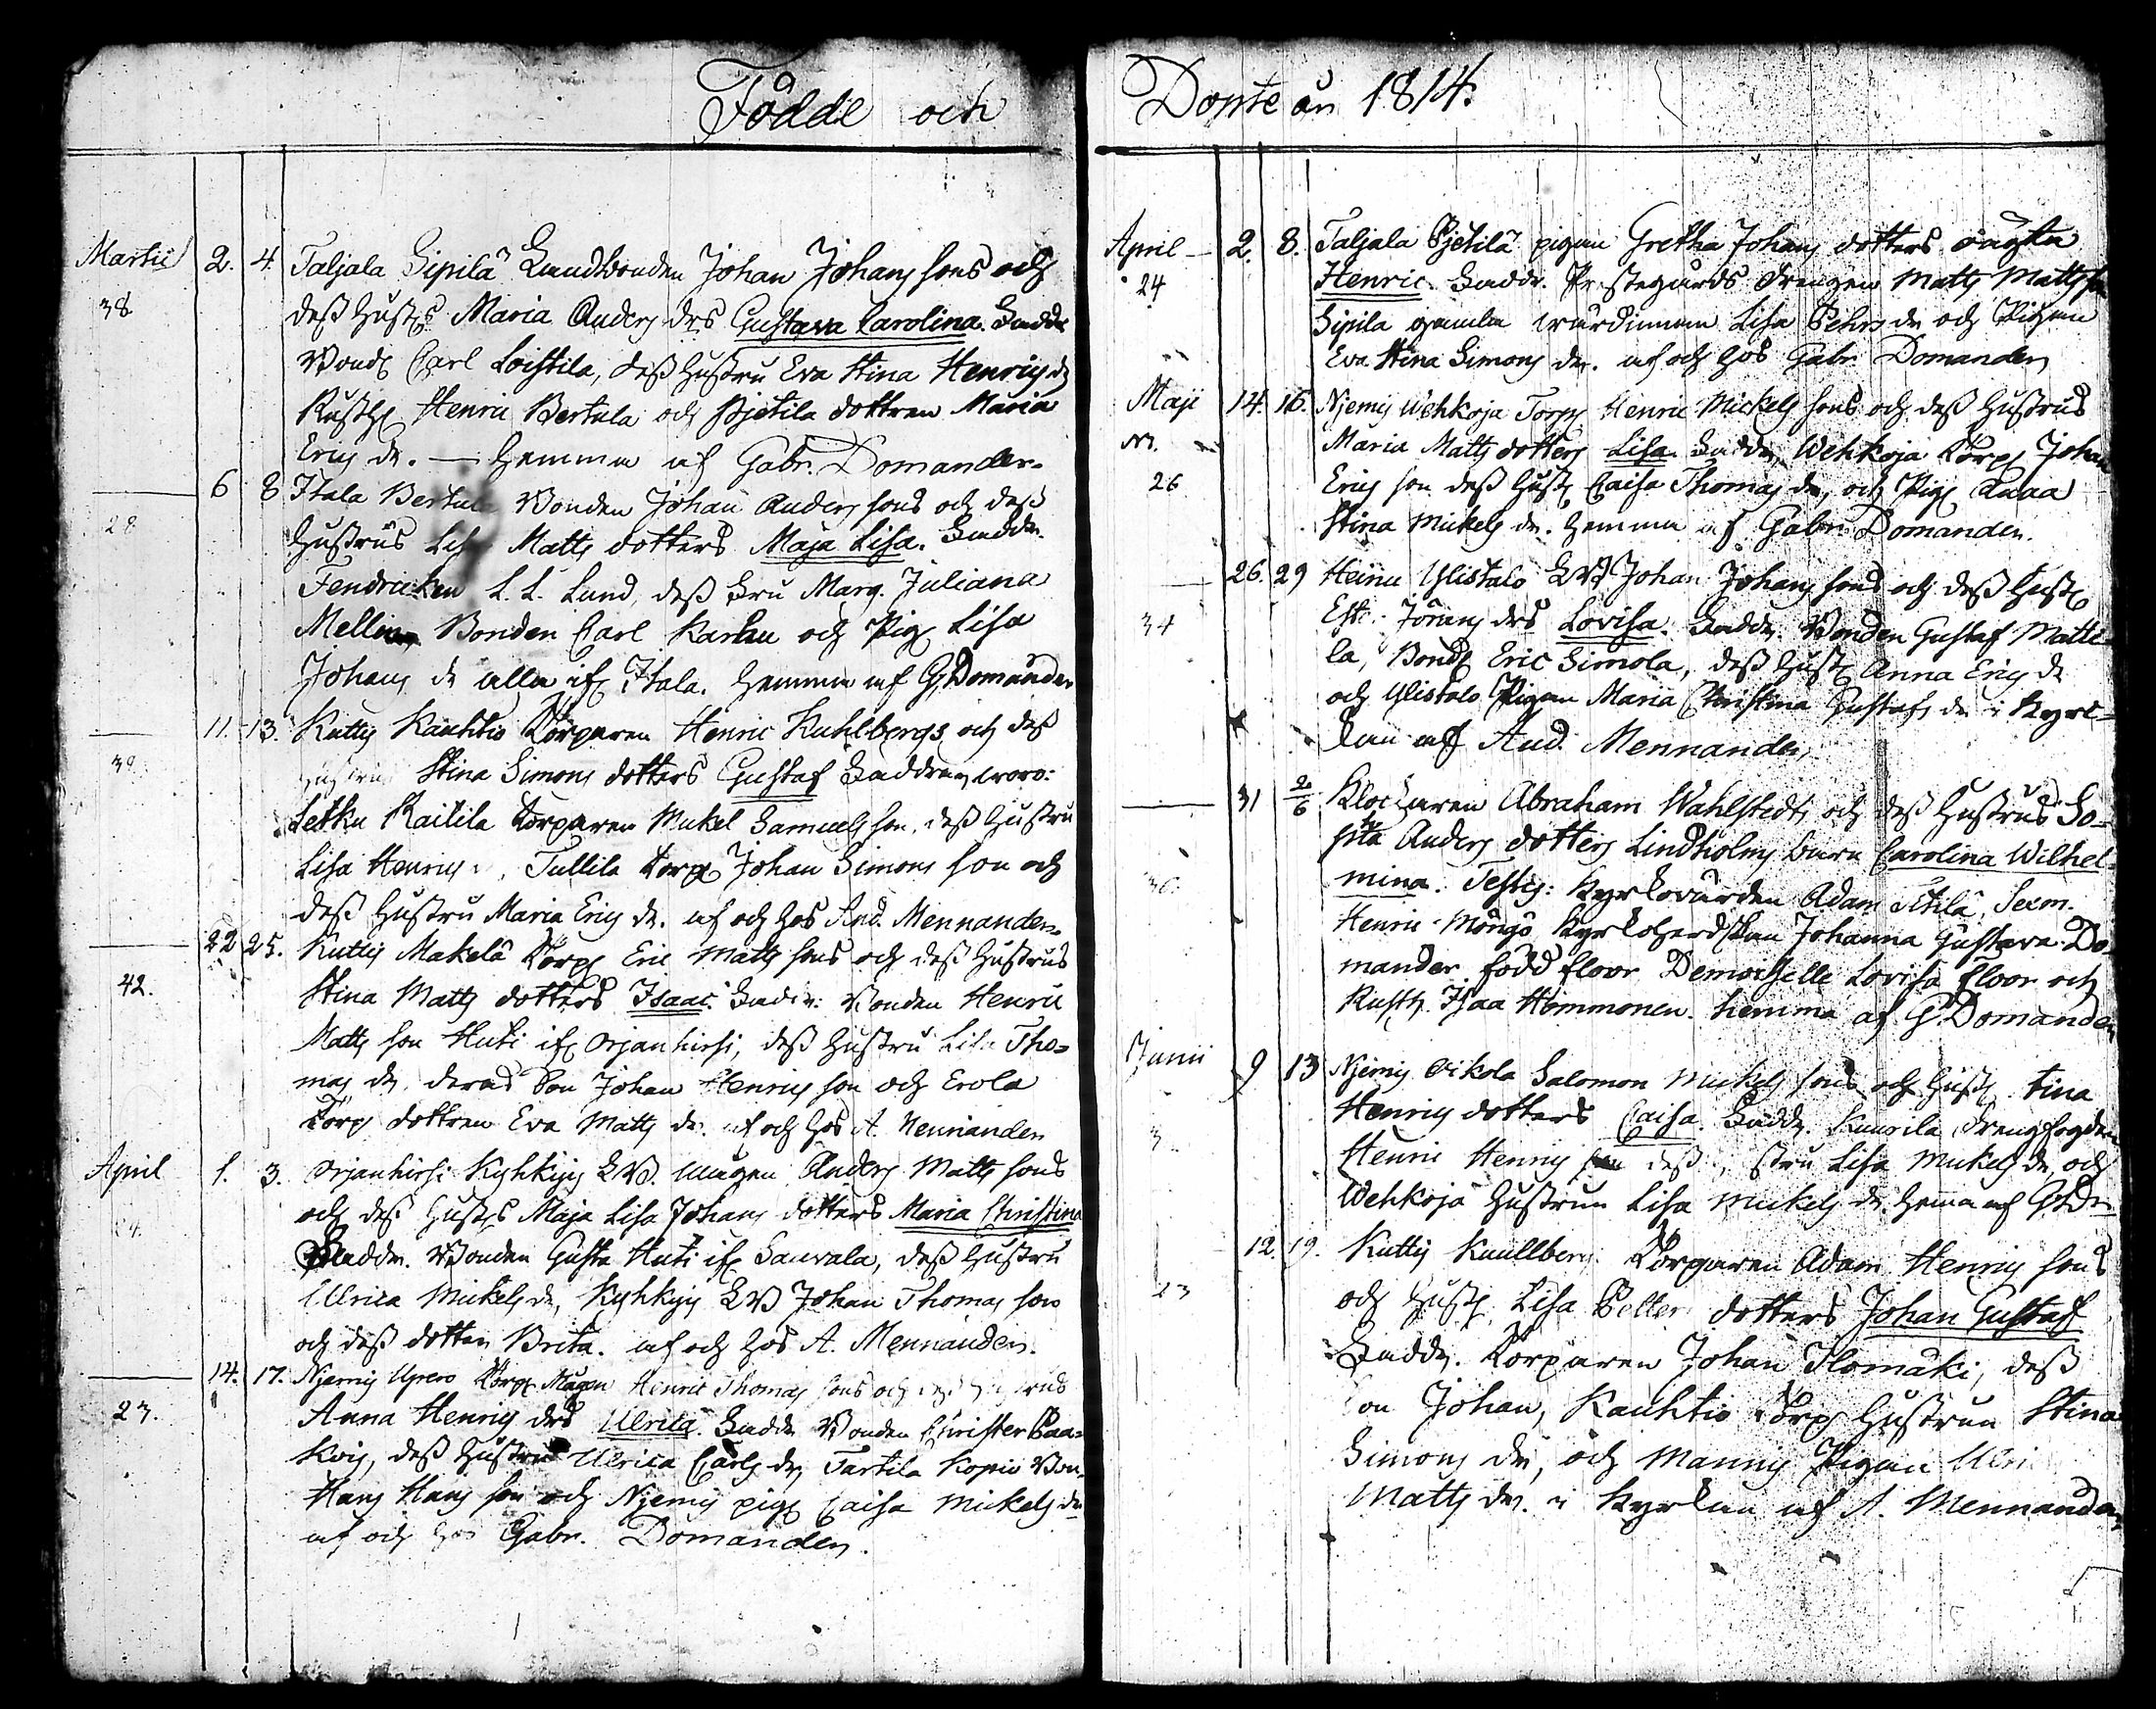 Födde och
Martii 2. 4. Taljala Sipilä Landbonden Johan Johans sons och
38 dess Hustrs Maria Anders drs Gustava Carolina. Faddr
Bond Carl Loistila, dess Hustru Eva Stina Henrics dr
Rusth Henric Bertula och Pjetila dottren Maria
Erics dr. — hemma af Gabr. Domander.
6 8 Itala Bertula Bonden Johan Anders sons och dess
28 Hustrus Lisa Matts dotters Maja Lisa. Faddr.
Fendricken L. L. Lund, dess Fru Marg. Juliana
Mellin, Bonden Carl Karhu och Pig Lisa
Johans dr alla if Itala. hemma af G. Domander
11. 13. Kuttis Kauhtio Torparen Henric Kuhlbergs och dess
39. Hustrus Stina Simons dotters Gustaf Faddrar woro:
Letku Kailila torparen Mickel Samuels son, dess Hustru
Lisa Henrics, Tullila torp Johan Simons son och
dess Hustru Maria Erics dr. af och hos And. Mennander.
22 25. Kuttis Makelä Torp Eric Matts sons och dess Hustrus
42. Stina Matts dotters Isaac. Faddr: Bonden Henric
Matts son Huti if Orjanhirsi, dess Hustru Lisa Tho=
mas dr, deras Son Johan Henrics son och Erola
Torp dottren Eva Matts dr. af och hos A. Mennander
April 1. 3. Orjanhirsi Kyhkyis LB. mågen Anders Matts sons
24. och dess Husts Maja Lisa Johans dotters Maria Christina
Faddr. Bonden Gusta Huti if Sauvala, dess Hustru
Ulrica Mickels dr, Kyhkyis LB Johan Thomas son
och dess dotter Brita. af och hos A. Mennander.
14. 17. Njemis Torp Mågen Henric Thomas sons och dess Hustrus
23. Anna Henrics drs Ulrica. Faddr Bonden Christer Paa=
kois, dess Hustru Ulrica Carls dr, Tartila Bon.
Hans Hans son och Njemis pig Caisa Mickels dr
af och hos Gabr. Domander.
Döpte år 1814.
April 2. 8. Taljala Pjetilä pigan Gretha Johans dotters oägta
24 Henric. Faddr. Prestegårds drengen Matts Matts son
Sipila gamla wärdinnan Lisa Pehrs dr och Pigan
Eva Stina Simons dr. af och hos Gabr. Domander
Maji 14. 16. Njemis Wehkoja Torp Henric Mickels sons och dess Hustrus
26 Maria Matts dotters Lisa. Faddr, Wehkoja Torp Johan
Erics son dess Hust Caisa Thomas dr, och Pig Anna
Stina Mickels dr. hemma af Gabr. Domander.
26. 29 Heinu Ylistalo LB Johan Johans sons och dess Hust
34 Est. Jörans drs Lovisa. Faddr. Bonden Gustaf Matti=
la, Bond Eric Simola, dess Hust Anna Erics dr
och Ylistalo Pigan Maria Christina Gustafs dr i Kyrc=
kan af And. Mennander,
31 2/6 Klockaren Abraham Wahlstedts och dess Hustrus So=
30. phia Anders dotters Lindholms barn Carolina Wilhel=
mina. Testes: Kyrkovärden Adam Sexm.
Henric Möngö Kyrkoherdskan Johanna Gustava Do=
mander född Floor Demoiselle Lovisa Floor och
Rusth. Isaa Hommonen. hemma af G. Domander
Junii 9 13 Njemis Oikola Salomon Mickels sons och Hust Stina
Henrics dotters Caisa. Faddr. Kaurila Drengfogden
Henric Henrics son dess Hustru Lisa Mickels dr, och
Wehkoja Hustrun Lisa Mickels dr. hemma af G. Dr
12. 19. Kuttis Kuullberg Torparen Adam Henrics sons
23 och Hust. Lisa Petter dotters Johan Gustaf
Faddr. Torparen Johan Ilomäki, dess
son Johan, Kauhtio Torp Hustrun Stina
Simons dr, och Mannis Pigan Ulri
Matts dr. i Kyrkan af A. Mennander